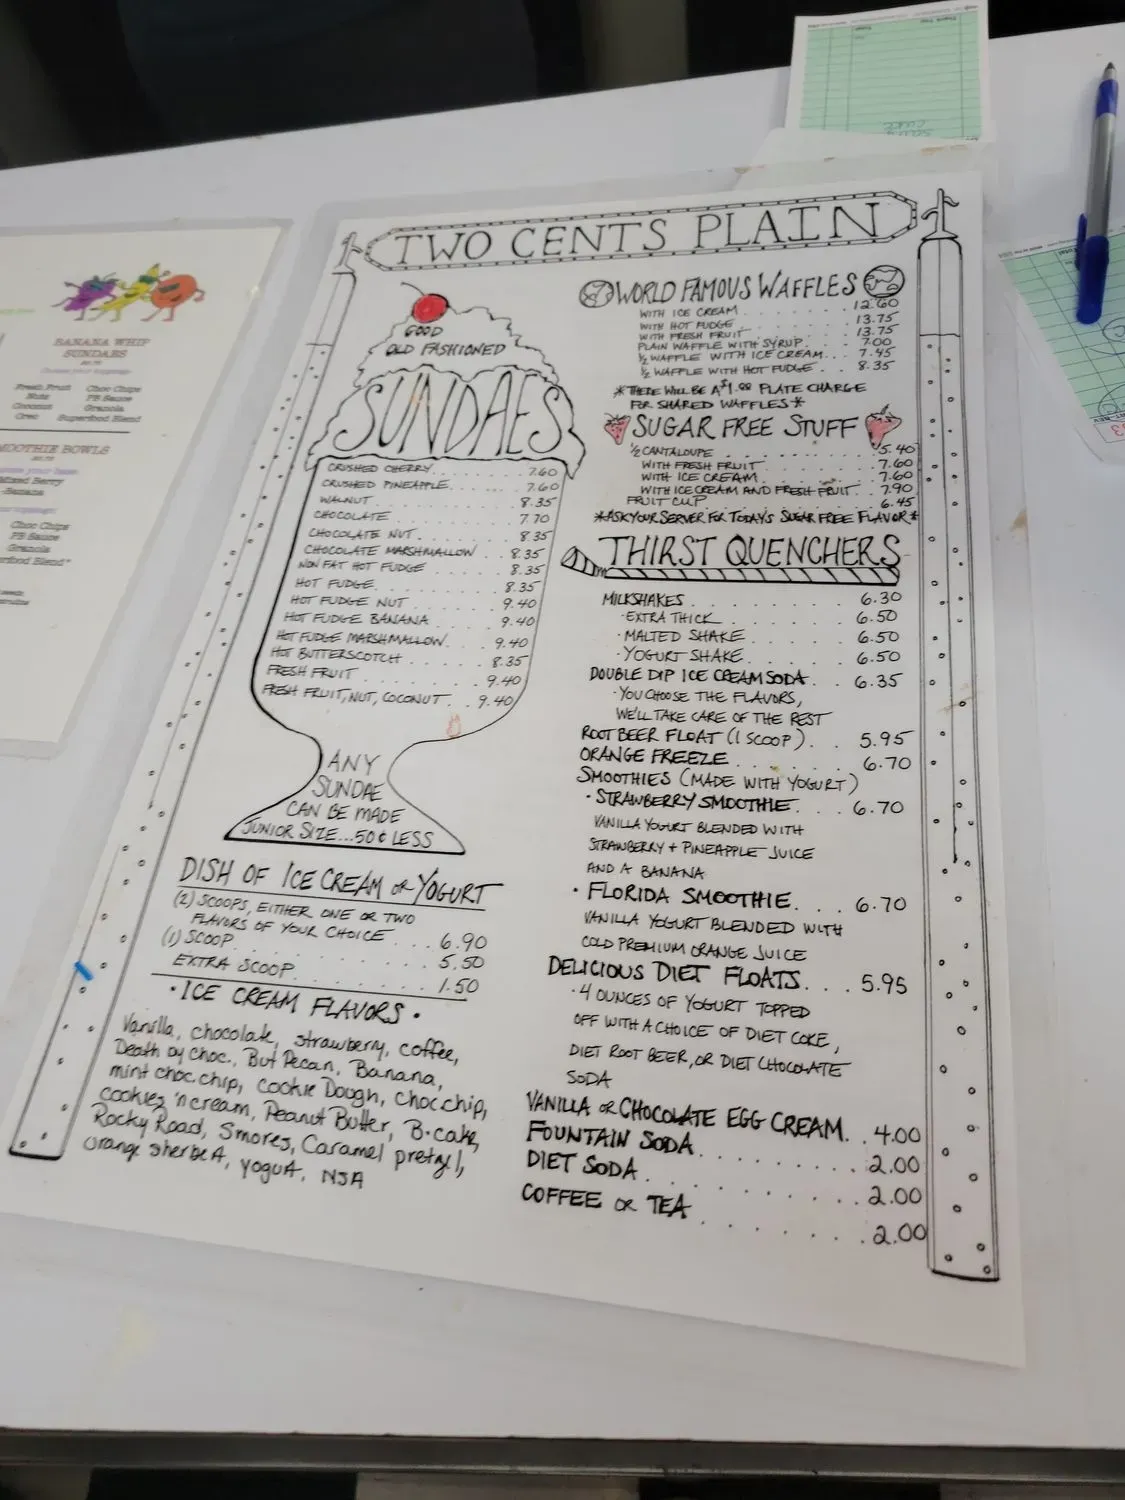 TWO CENTS PLAIN
GOOD
OLD FASHIONED
SUNDAES
CRUSHED CHERRY........ 7.60
CRUSHED PINEAPPLE....... 7.60
WALNUT............ 8.35
CHOCOLATE.......... 7.70
CHOCOLATE NUT........ 8.35
CHOCOLATE MARSHMALLOW.. 8.35
NON FAT HOT FUDGE...... 8.35
HOT FUDGE.......... 8.35
HOT FUDGE NUT........ 9.40
HOT FUDGE BANANA...... 9.40
HOT FUDGE MARSHMALLOW.... 9.40
HOT BUTTERSCOTCH...... 8.35
FRESH FRUIT......... 9.40
FRESH FRUIT, NUT, COCONUT... 9.40
ANY
SUNDAE
CAN BE MADE
JUNIOR SIZE...50¢ LESS
DISH OF ICE CREAM OR YOGURT
(2) SCOOPS, EITHER ONE OR TWO
FLAVORS OF YOUR CHOICE... 6.90
(1) SCOOP......... 5.50
EXTRA SCOOP....... 1.50
• ICE CREAM FLAVORS •
Vanilla, chocolate, strawberry, coffee,
Death by Choc., But Pecan, Banana,
mint choc.chip, Cookie Dough, Choc.chip,
cookies 'n cream, Peanut Butter, B.cake,
Rocky Road, Smores, Caramel pretzel,
orange sherbet, yogurt, NSA
WORLD FAMOUS WAFFLES
WITH ICE CREAM........ 12.60
WITH HOT FUDGE........ 13.75
WITH FRESH FRUIT....... 13.75
PLAIN WAFFLE WITH SYRUP.... 7.00
½ WAFFLE WITH ICE CREAM... 7.45
½ WAFFLE WITH HOT FUDGE.. 8.35
*THERE WILL BE A $1.00 PLATE CHARGE
FOR SHARED WAFFLES*
SUGAR FREE STUFF
½ CANTALOUPE........ 5.40
WITH FRESH FRUIT....... 7.60
WITH ICE CREAM........ 7.60
WITH ICE CREAM AND FRESH FRUIT.. 7.90
FRUIT CUP.......... 6.45
*ASK YOUR SERVER FOR TODAY'S SUGAR FREE FLAVOR*
THIRST QUENCHERS
MILKSHAKES......... 6.30
•EXTRA THICK........ 6.50
•MALTED SHAKE....... 6.50
•YOGURT SHAKE....... 6.50
DOUBLE DIP ICE CREAM SODA.. 6.35
•YOU CHOOSE THE FLAVORS,
WE'LL TAKE CARE OF THE REST
ROOT BEER FLOAT (1 SCOOP).. 5.95
ORANGE FREEZE........ 6.70
SMOOTHIES (MADE WITH YOGURT)
• STRAWBERRY SMOOTHIE... 6.70
VANILLA YOGURT BLENDED WITH
STRAWBERRY + PINEAPPLE JUICE
AND A BANANA
• FLORIDA SMOOTHIE... 6.70
VANILLA YOGURT BLENDED WITH
COLD PREMIUM ORANGE JUICE
DELICIOUS DIET FLOATS... 5.95
• 4 OUNCES OF YOGURT TOPPED
OFF WITH A CHOICE OF DIET COKE,
DIET ROOT BEER, OR DIET CHOCOLATE
SODA
VANILLA OR CHOCOLATE EGG CREAM.. 4.00
FOUNTAIN SODA........ 2.00
DIET SODA......... 2.00
COFFEE OR TEA....... 2.00
BANANA WHIP
SUNDAES
Fresh Fruit Choc Chips
Nuts PB Sauce
Coconut Granola
Oreo Superfood Blend
SMOOTHIE BOWLS
Berry
Banana
Choc Chips
PB Sauce
Granola
Blend*